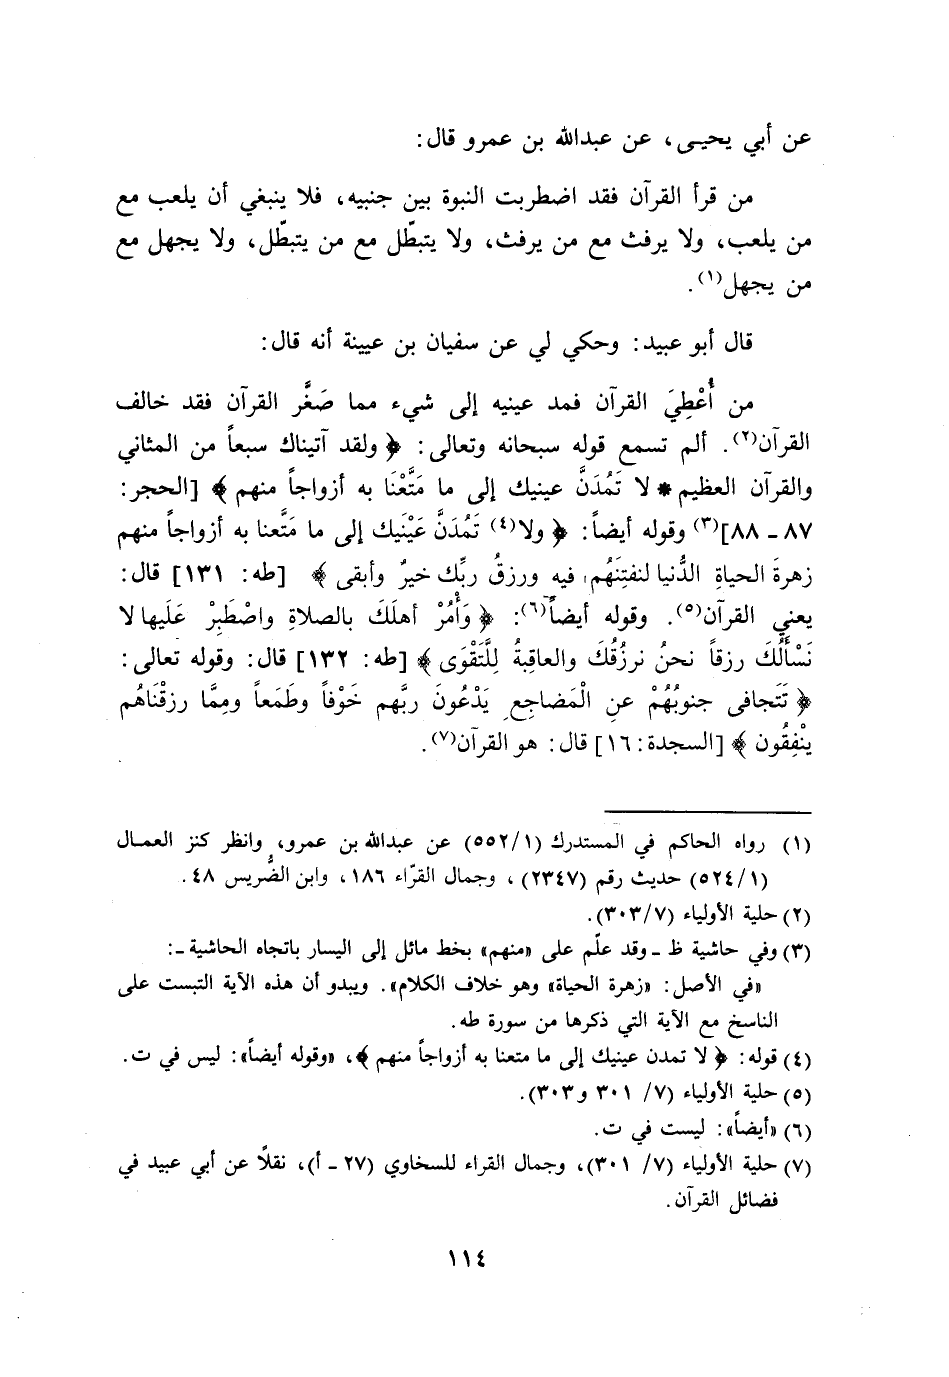 عن أبي يحيـى، عن عبدالله بن عمرو قال:
من قرأ القرآن فقد اضطربت النبوة بين جنبيه، فلا ينبغي أن يلعب مع
من يلعب، ولا يرفث مع من يرفث، ولا يتبطّل مع من يتبطّل، ولا يجهل مع
من يجهل(١).
قال أبو عبيد: وحكي لي عن سفيان بن عيينة أنه قال:
من أُعْطِيَ القرآن فمد عينيه إلى شيء مما صَغَّر القرآن فقد خالف
القرآن(٢). ألم تسمع قوله سبحانه وتعالى: ﴿ ولقد آتيناك سبعاً من المثاني
والقرآن العظيم * لا تَمُدَنَّ عينيك إلى ما مَتَّعْنَا به أزواجاً منهم ﴾ [الحجر:
٨٧ ـ ٨٨](٣) وقوله أيضاً: ﴿ ولا(٤) تَمُدَنَّ عَيْنَيك إلى ما مَتَّعنا به أزواجاً منهم
زهرةَ الحياةِ الدُّنيا لنفتِنَهُم فيه ورزقُ ربِّك خيرٌ وأبقى ﴾ [طه: ١٣١] قال:
يعني القرآن(٥). وقوله أيضاً(٦): ﴿ وَأْمُرْ أهلَكَ بالصلاةِ واصْطَبِرْ عَلَيها لا
نَسْأَلُكَ رزقاً نحنُ نرزُقُكَ والعاقبةُ لِلتَّقْوَى ﴾ [طه: ١٣٢] قال: وقوله تعالى:
﴿ تَتَجافى جنوبُهُمْ عنِ الْمَضاجِعِ يَدْعُونَ ربَّهم خَوْفاً وطَمَعاً ومِمَّا رزقْنَاهُم
ينْفِقُون ﴾ [السجدة: ١٦] قال: هو القرآن(٧).
(١) رواه الحاكم في المستدرك (١/ ٥٥٢) عن عبدالله بن عمرو، وانظر كنز العمال
(١/ ٥٢٤) حديث رقم (٢٣٤٧)، وجمال القرّاء ١٨٦، وابن الضُّريس ٤٨.
(٢) حلية الأولياء (٧/ ٣٠٣).
(٣) وفي حاشية ظ ـ وقد علّم على «منهم» بخط مائل إلى اليسار باتجاه الحاشية ـ:
«في الأصل: «زهرة الحياة» وهو خلاف الكلام». ويبدو أن هذه الآية التبست على
الناسخ مع الآية التي ذكرها من سورة طه.
(٤) قوله: ﴿ لا تمدن عينيك إلى ما متعنا به أزواجاً منهم ﴾، «وقوله أيضاً»: ليس في ت.
(٥) حلية الأولياء (٧/ ٣٠١ و٣٠٣).
(٦) «أيضاً»: ليست في ت.
(٧) حلية الأولياء (٧/ ٣٠١)، وجمال القراء للسخاوي (٢٧ ـ أ)، نقلاً عن أبي عبيد في
فضائل القرآن.
١١٤